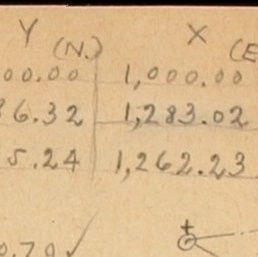 Y (N.) X (E
00.00 1,000.00
36.32 1,283.02
5.24 1,262.23
0.70 ✓